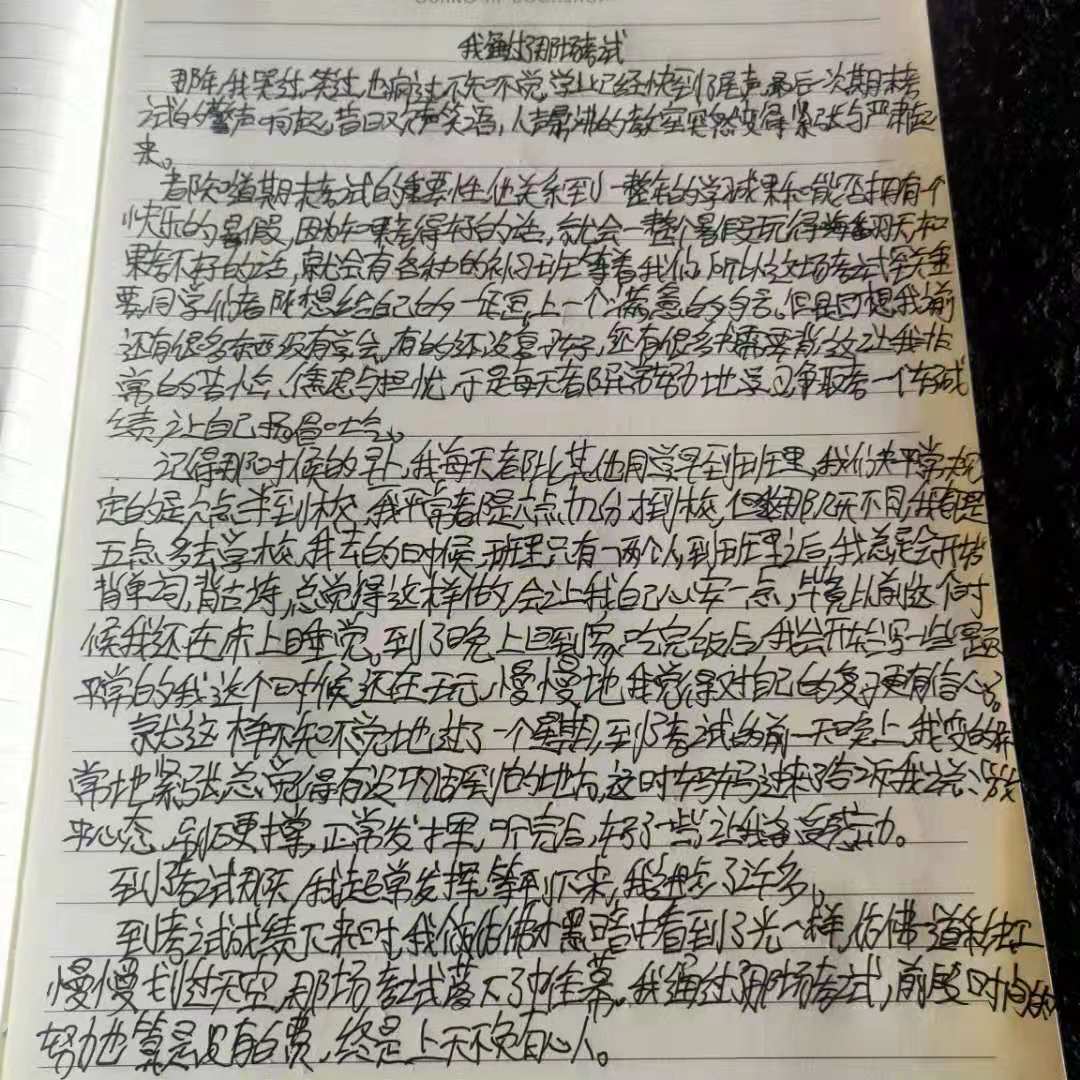 我通过了那场考试
那年,我哭过,笑过,也痛过,不知不觉,学业已经快到了尾声,最后一次期末考
试的警声响起,昔日欢声笑语,人声鼎沸的教室突然变得紧张与严肃起
来。
都知道期末考试的重要性,他关系到一整年的学习成果和能否拥有一个
快乐的暑假,因为如果考得好的话,就会一整个暑假玩得海翻天,如
果考不好的话,就会有各种的补习班等着我们,所以这场考试至关重
要,同学们都想给自己的一年画上一个满意的句号。但是回想我前
还有很多东西没有学会,有的还没复习好,还有很多需要背,这让我非
常的苦恼、焦虑与担忧,于是每天都异常努力地学习,争取考一个好成
绩,让自己扬眉吐气。
记得那时候的早上,我每天都比其他同学早到班里,我们平常规
定的是六点半到校,我平常都是六点几分才到校,但那几天不同,我都是
五点多去学校,我去的时候,班里只有一两个人,到班里之后,我总是会开始
背单词,背古诗,总觉得这样做,会让我自己心安一点,毕竟从前这个时
候我还在床上睡觉。到了晚上回到家,吃完饭后,我会开始写一些题
平常的我这个时候还在玩,慢慢地,我觉得对自己的复习更有信心了。
就这样不知不觉地过了一个星期,到了考试的前一天晚上,我变的异
常地紧张,总觉得有没巩固到的地方,这时妈妈过来了,告诉我说:放
平心态,别紧张,正常发挥,听完后,好了一些,让我备受感动。
到了考试那天,我超常发挥,等到下来,我进步了许多。
到考试成绩下来时,我仿佛在黑暗中看到了光一样,仿佛一道彩虹
慢慢划过天空,那场考试落下了帷幕。我通过了那场考试,前段时间的
努力也算是没有白费,终是上天不负有心人。